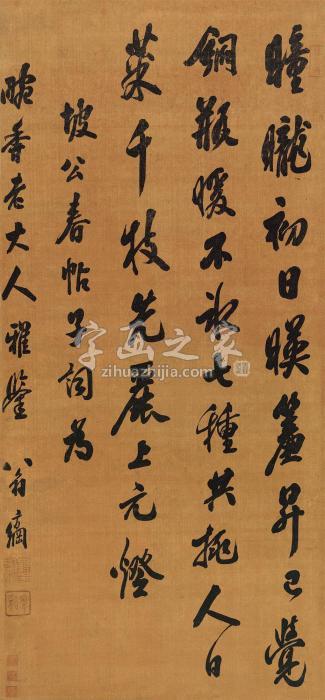 瞳曨初日暎簾昇已覺
銅瓶暖不冰七種共挑人日
菜千枝先上元燈
坡公春帖子詞為
香老大人雅鑒 翁
字画之家
zihuazhijia.com